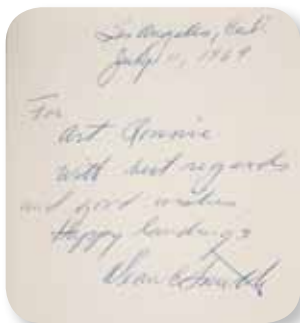 Los Angeles, Calif
July 11, 1969
For
Art Ronnie
with best regards
and good wishes
Happy landings
Dean C Smith